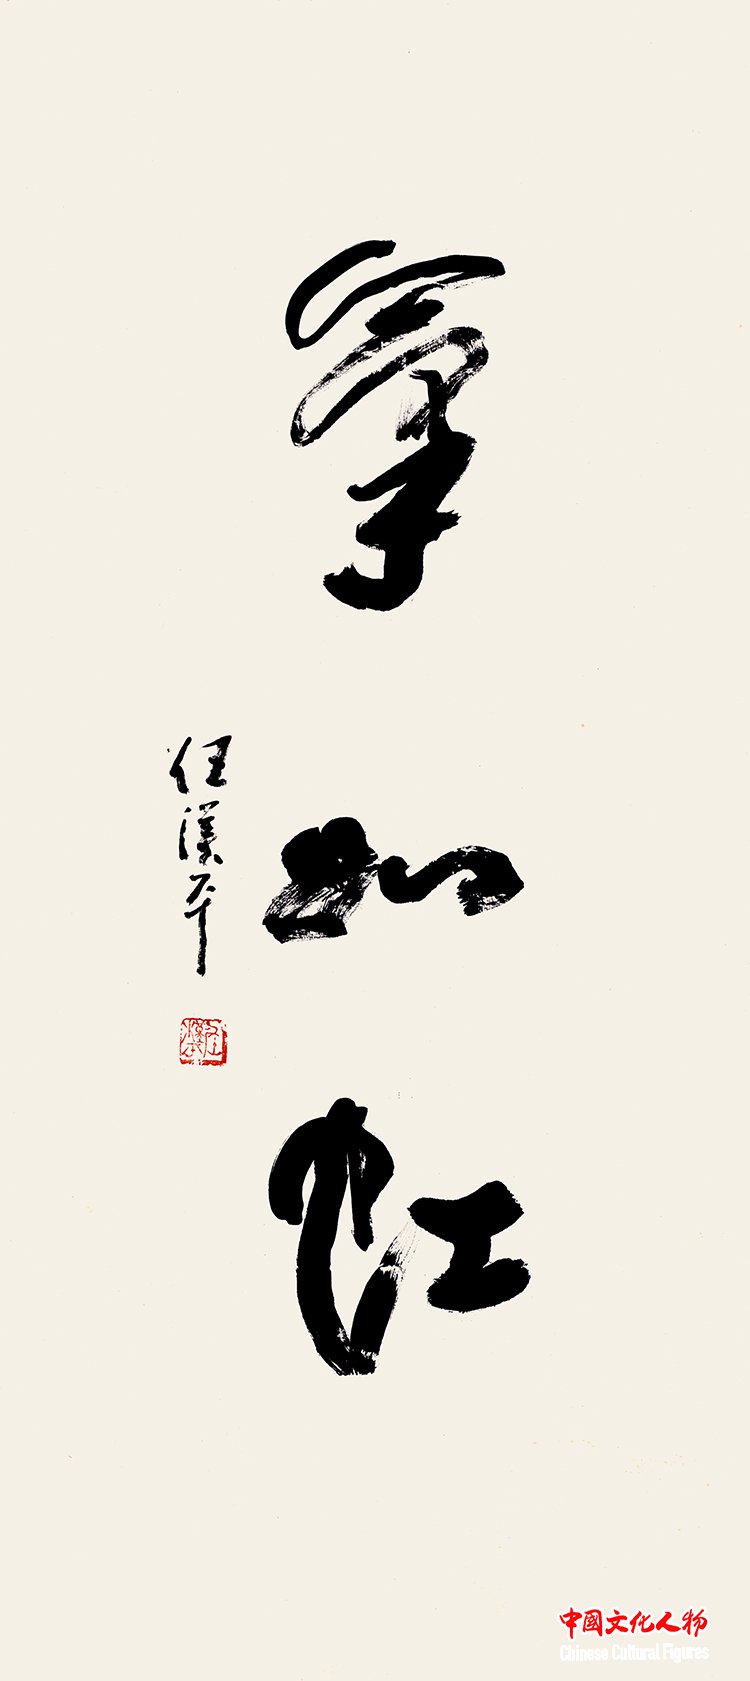 氣如虹
任漢平
中國文化人物
Chinese Cultural Figures